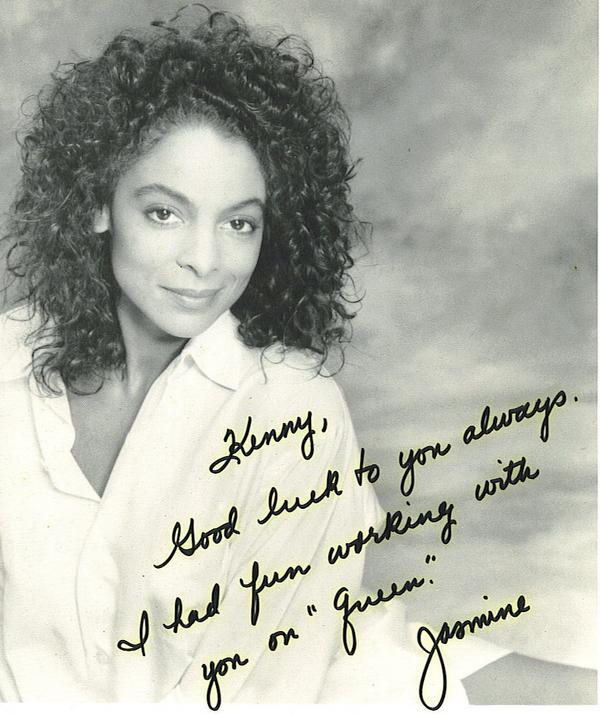 Kenny,
Good luck to you always.
I had fun working with
you on "Queen."
Jasmine